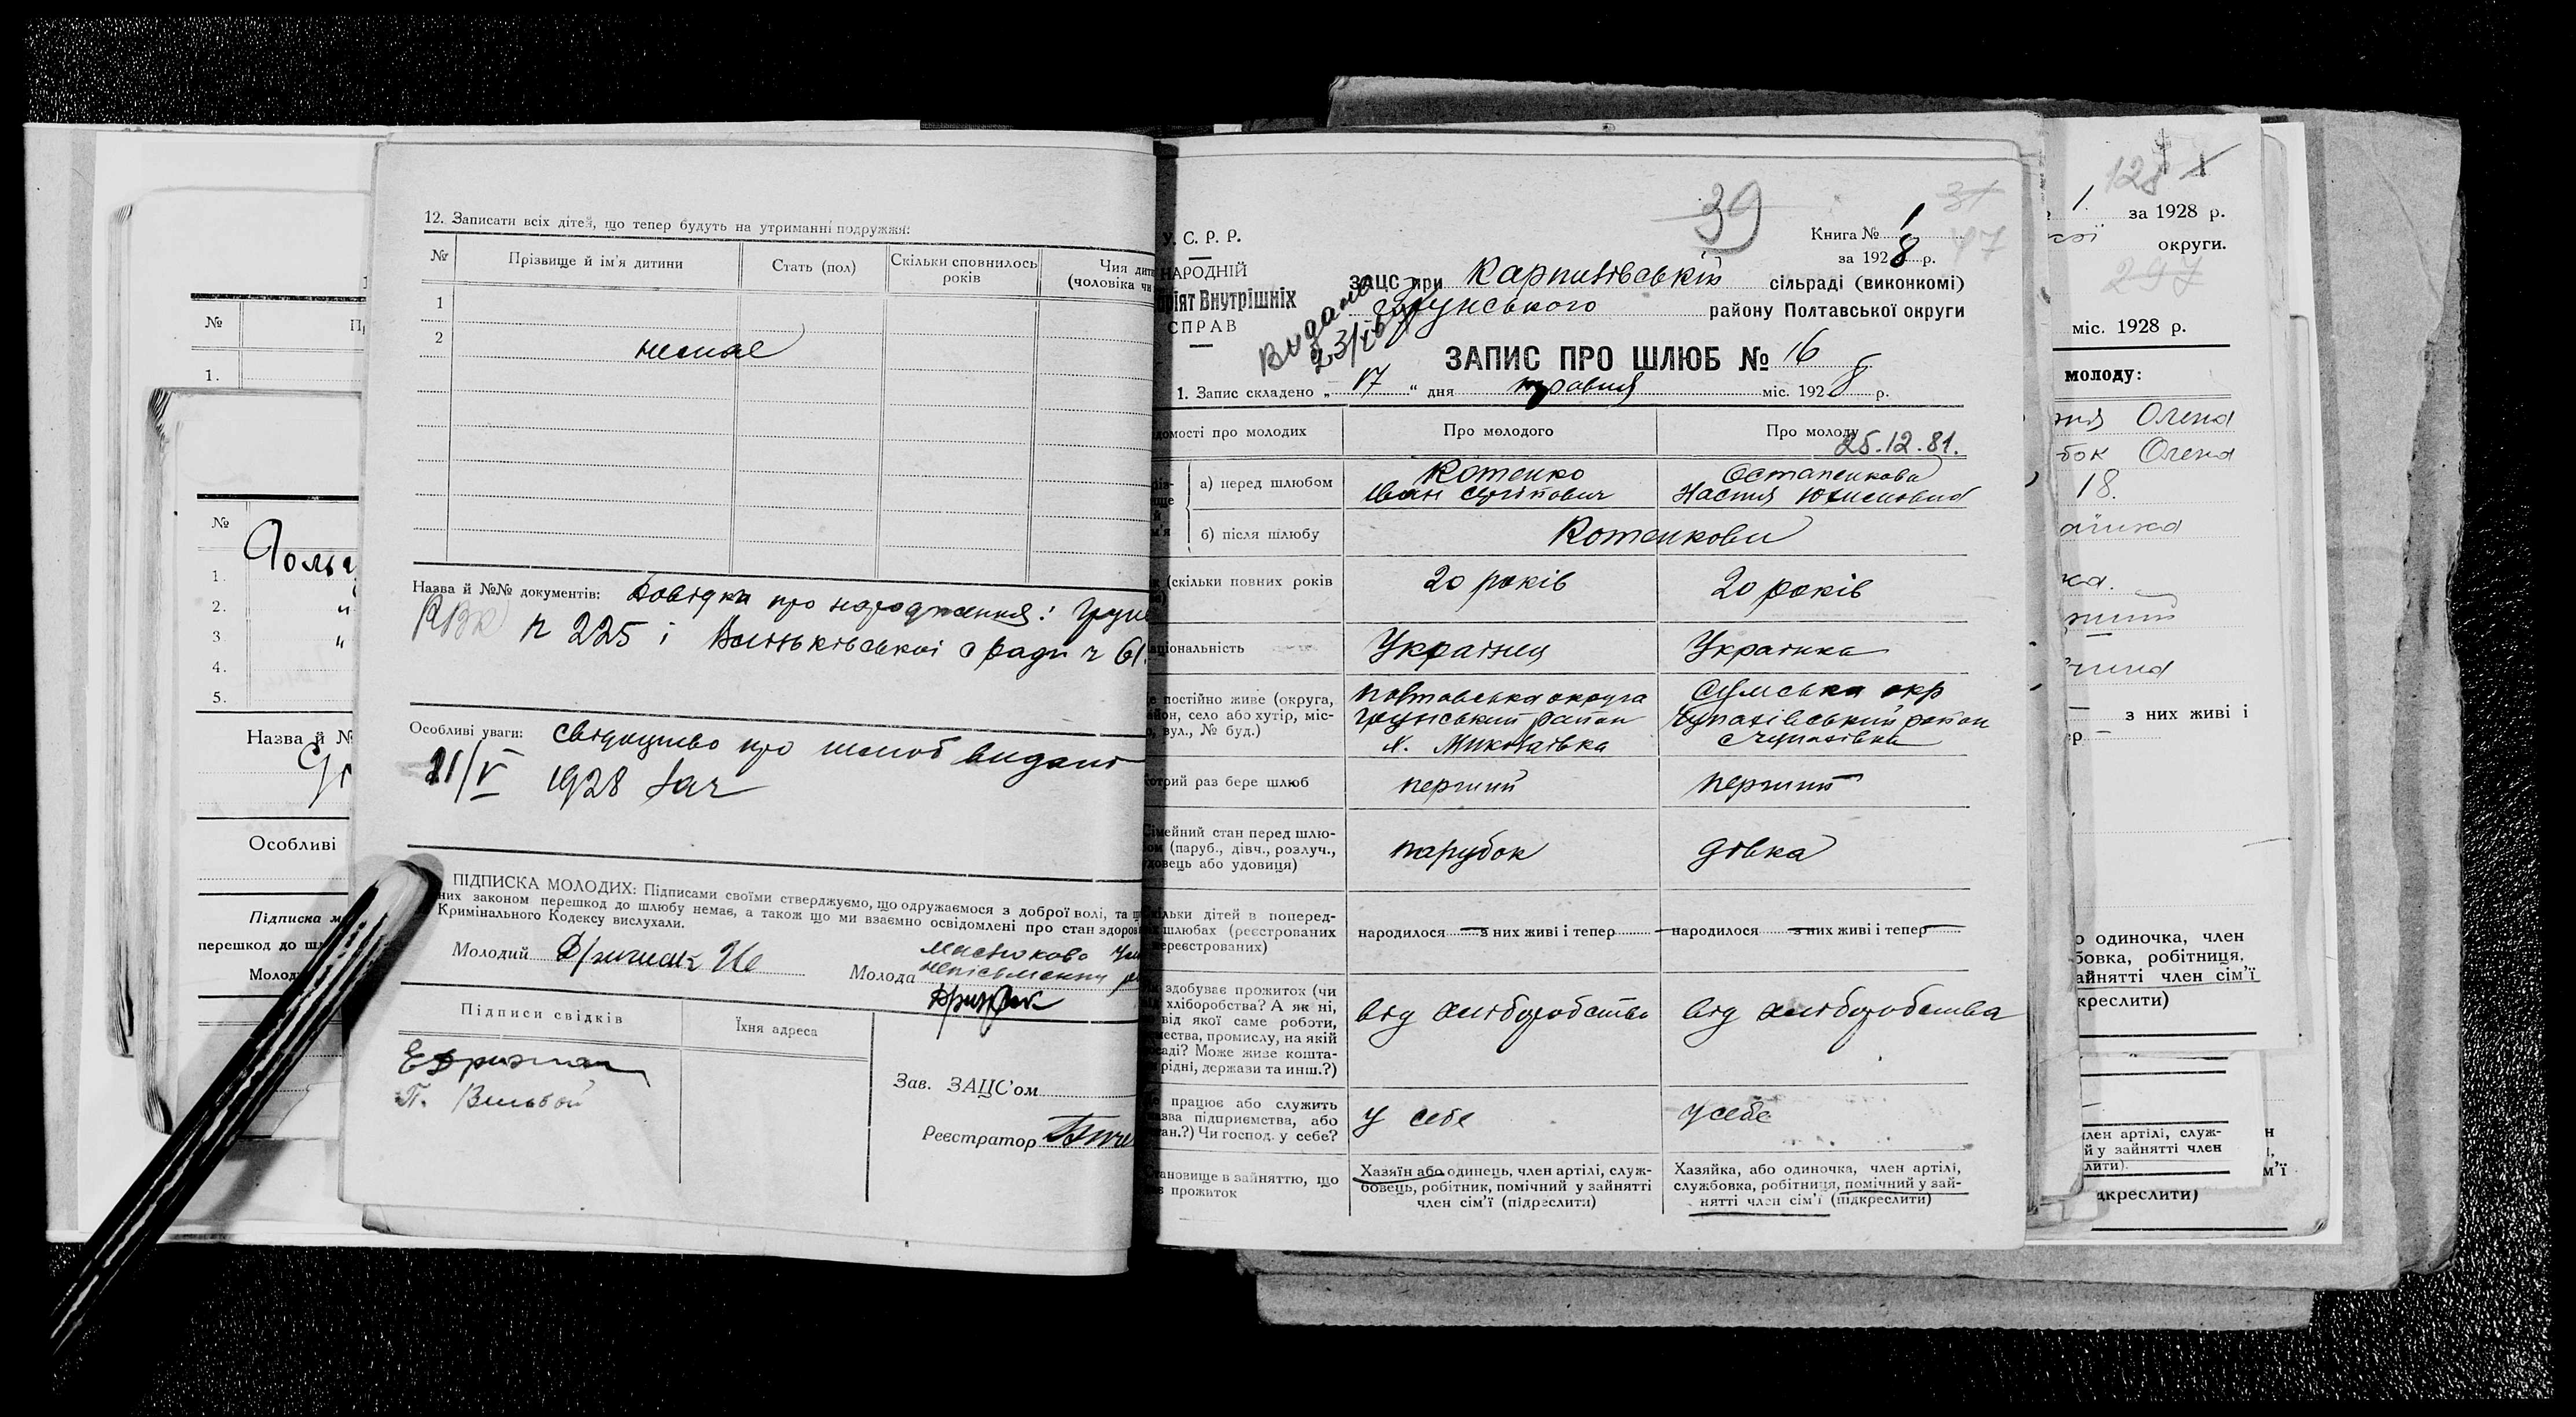 12. Записати всіх дітей, що тепер будуть на утриманні подружжя:
№
Прізвище й ім'я дитини
Стать (пол)
Скільки сповнилось років
Чия дити
(чоловіка чи
1
2
немає
Назва й №№ документів: Довідка про народження: Грун
РВК n 225 і ради ч 61.
Особливі уваги: свідоцтво про шлюб видано
21/V 1928
ПІДПИСКА МОЛОДИХ: Підписами своїми стверджуємо, що одружаємося з доброї волі, та
них законом перешкод до шлюбу немає, а також що ми взаємно освідомлені про стан здоров
Кримінального Кодексу вислухали.
Молодий
Молода
Підписи свідків
Їхня адреса
Зав. ЗАЦС'ом
Реєстратор
У. С. Р. Р.
НАРОДНІЙ
ріят Внутрішніх
СПРАВ
Видано
39
Книга № 1
за 1928 р.
ЗАЦС при Карпилівській сільраді (виконкомі)
Грунського району Полтавської округи
ЗАПИС ПРО ШЛЮБ № 16
1. Запис складено „ 17 " дня травня міс. 1928 р.
домості про молодих
Про молодого
Про молоду
25.12.81.
а) перед шлюбом
Котенко
Іван Сергійович
Остапенкова
Настия Юхимовна
б) після шлюбу
Котенкови
(скільки повних років
20 років
20 років
ціональність
Українец
Українка
постійно живе (округа,
йон, село або хутір, міс-
о, вул., № буд.)
Полтавська округа
Грунський район
х. Миколаївка
Сумська окр
Чупахівський район
с Чупахівка
отрий раз бере шлюб
перший
перший
Сімейний стан перед шлю-
ом (паруб., дівч., розлуч.,
удовець або удовиця)
парубок
дівка
кільки дітей в поперед-
шлюбах (реєстрованих
нереєстрованих)
народилося — з них живі і тепер —
народилося — з них живі і тепер —
здобуває прожиток (чи
хліборобства? А як ні,
від якої саме роботи,
мества, промислу, на якій
саді? Може живе кошта-
рідні, держави та инш.?)
від хліборобства
від хліборобства
працює або служить
назва підприємства, або
ан.?) Чи господ. у себе?
у себе
у себе
тановище в зайняттю, що
прожиток
Хазяїн або одинець, член артілі, служ-
бовець, робітник, помічний у зайнятті
член сім'ї (підреслити)
Хазяйка, або одиночка, член артілі,
службовка, робітниця, помічний у зай-
нятті член сім'ї (підкреслити)
№
1.
№
1.
2.
3
4.
5.
Назва й №
Особливі
Підписка м
перешкод до шл
Молод
128
1. за 1928 р.
округи.
297
міс. 1928 р.
молоду:
Олена
Олена
18.
з них живі і
одиночка, член
бовка, робітниця,
айнятті член сім'ї
креслити)
член артілі, служ-
й у зайнятті член
лити).
дкреслити)